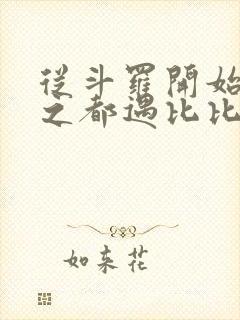 從斗羅開始
之都遇比比
如来花